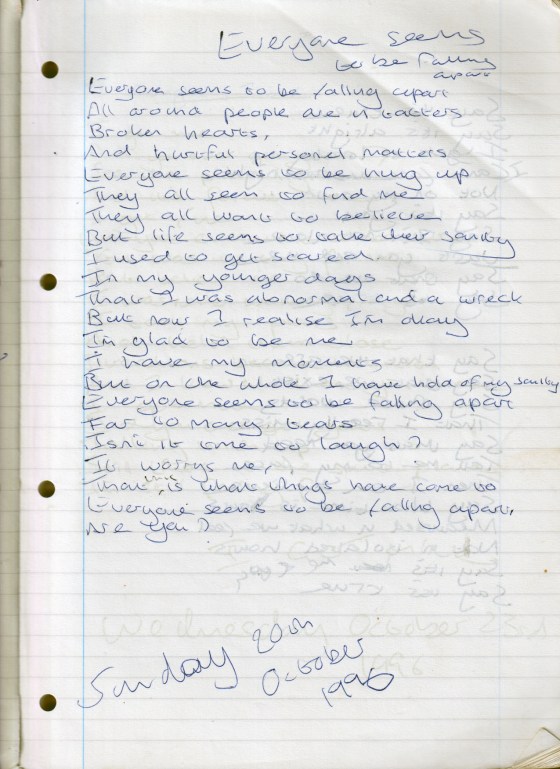 Everyone seems
to be falling
apart
Everyone seems to be falling apart
All around people are in tatters
Broken hearts,
And hurtful personal matters
Everyone seems to be hung up
They all seem to find me
They all want to believe
But life seems to take their sanity
I used to get scared
In my younger days
That I was abnormal and a wreck
But now I realise I'm okay
I'm glad to be me
I have my moments
But on the whole I have hold of my sanity
Everyone seems to be falling apart
Far to many tears
Isn't it time to laugh?
It worrys me,
That this is what things have come to
Everyone seems to be falling apart,
Are You?
Sunday 20th
October
1996